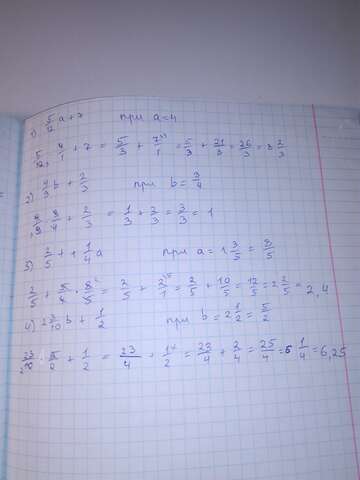 1) 5/12 a + 7 при a = 4
5/12 · 4/1 + 7 = 5/3 + 7/1 = 5/3 + 21/3 = 26/3 = 8 2/3
2) 4/9 b + 2/3 при b = 3/4
4/9 · 3/4 + 2/3 = 1/3 + 2/3 = 3/3 = 1
3) 2/5 + 1 1/4 a при a = 1 3/5 = 8/5
2/5 + 5/4 · 8/5 = 2/5 + 2/1 = 2/5 + 10/5 = 12/5 = 2 2/5 = 2,4
4) 2 3/10 b + 1/2 при b = 2 1/2 = 5/2
23/10 · 5/2 + 1/2 = 23/4 + 1/2 = 23/4 + 2/4 = 25/4 = 6 1/4 = 6,25